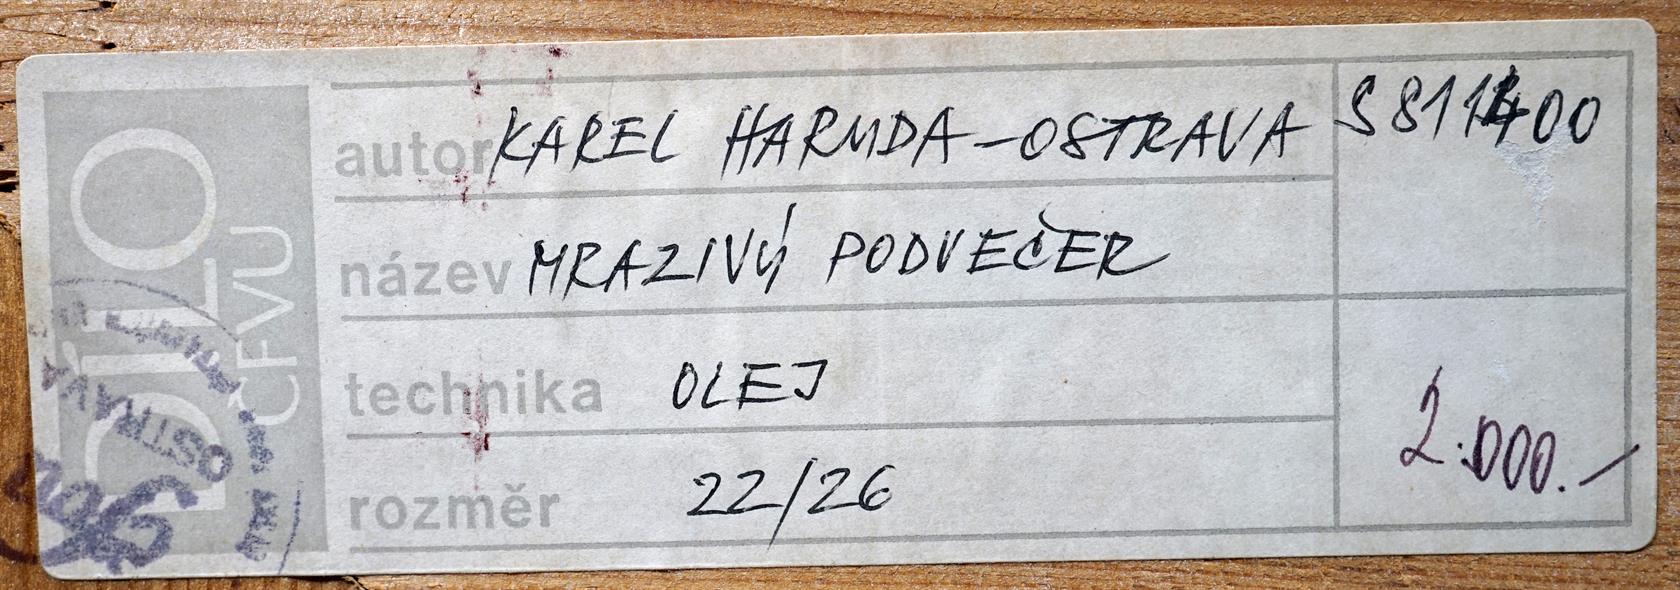 DÍLO
ČFVU
autor KAREL HARUDA-OSTRAVA
S811400
název MRAZIVÝ PODVEČER
technika OLEJ
rozměr 22/26
2.000.-
OSTRAVA